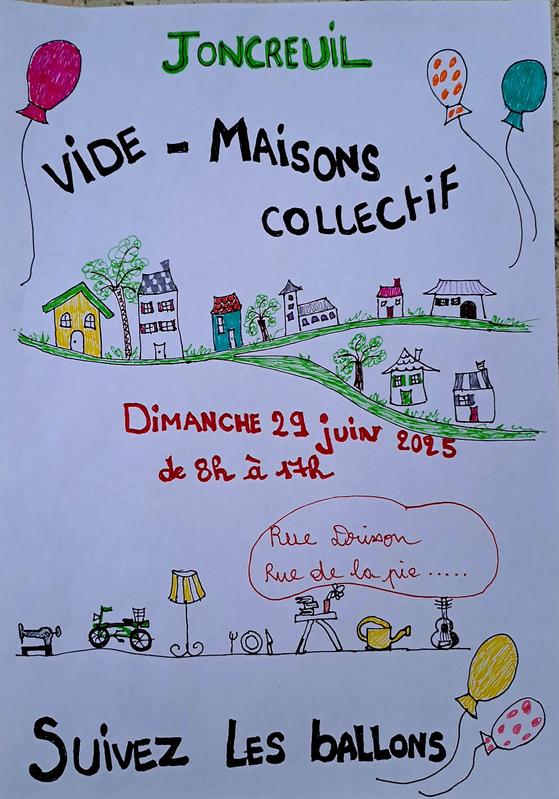 JONCREUIL
VIDE - MAiSONS
COLLECtiF
DiMANCHE 29 juin 2025
de 8h à 17h
Rue Drisson
Rue de la pie.....
SUiVEZ LES bALLONS